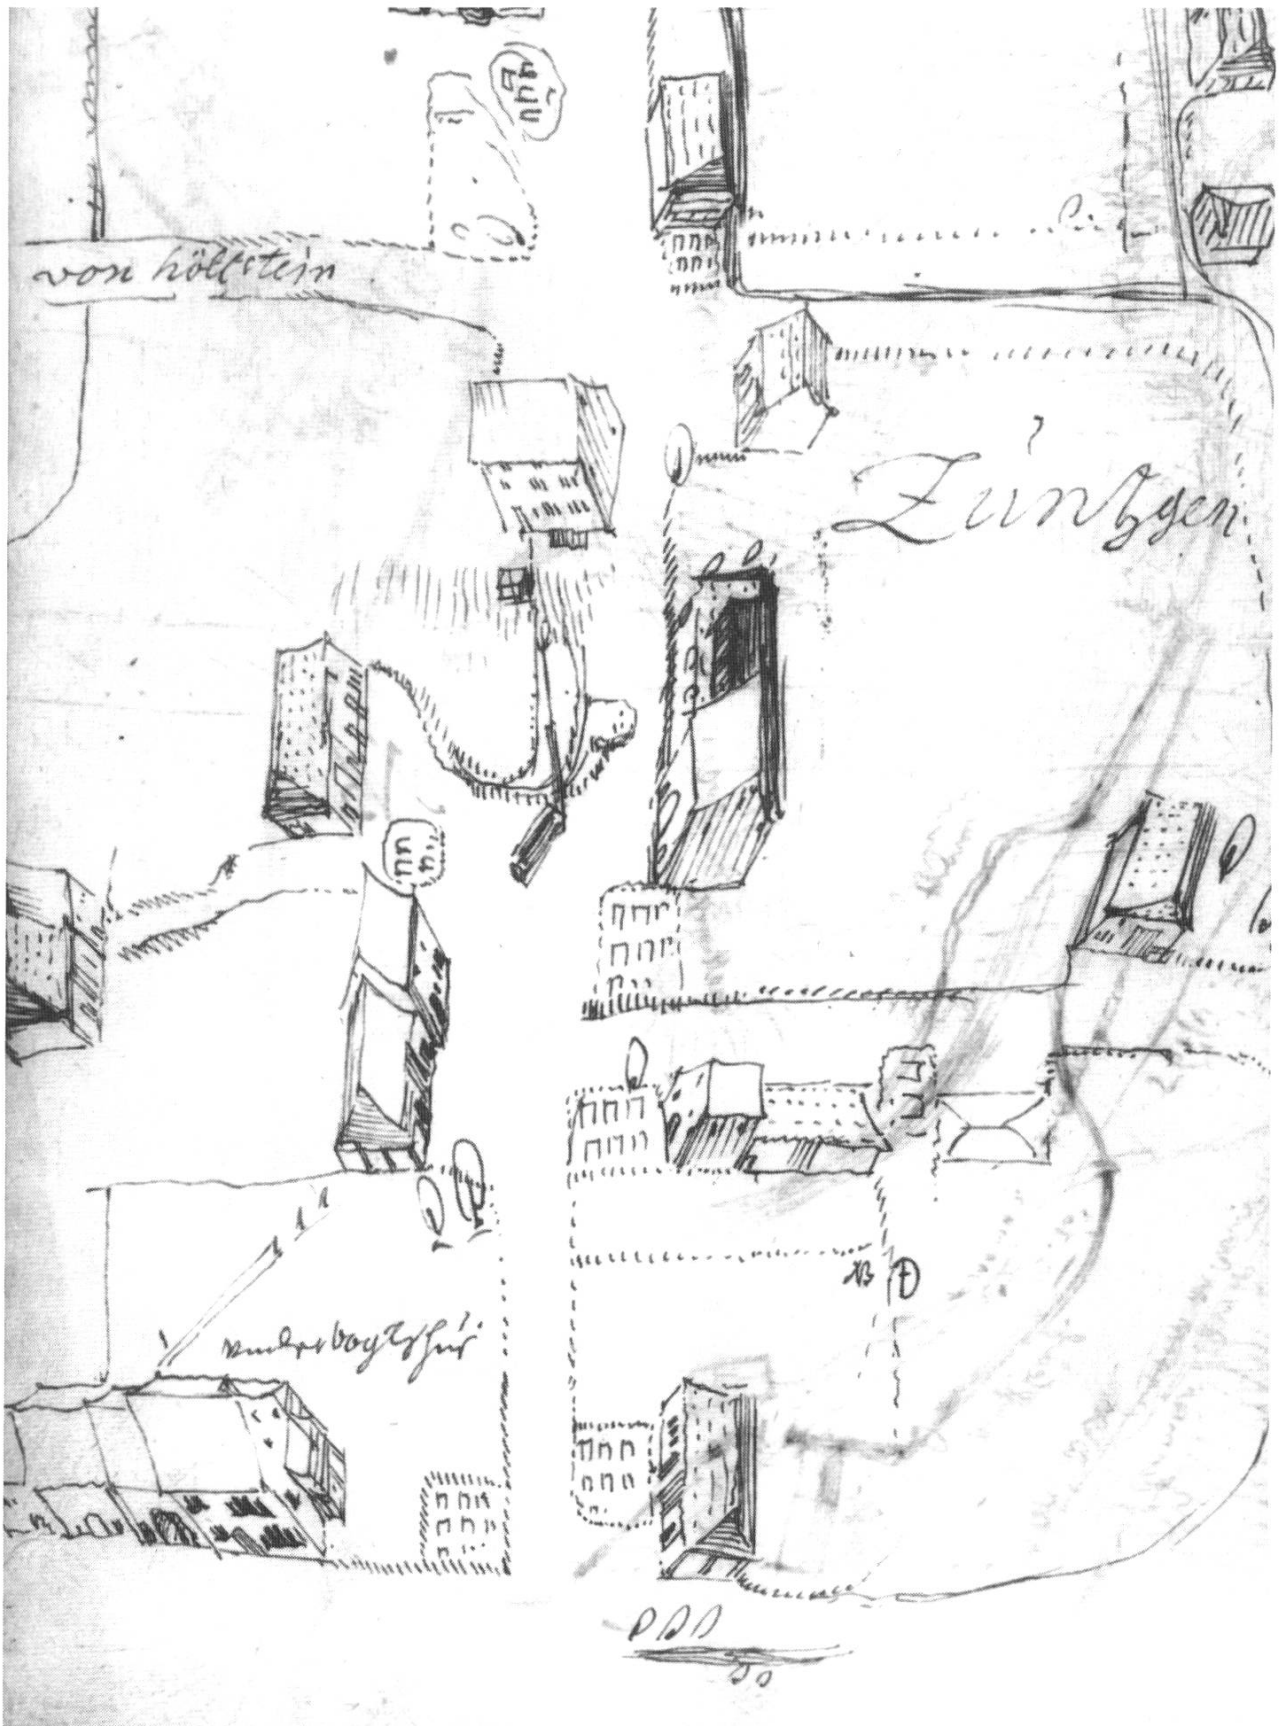 von höllstein
Züntzgen
undervogtshus